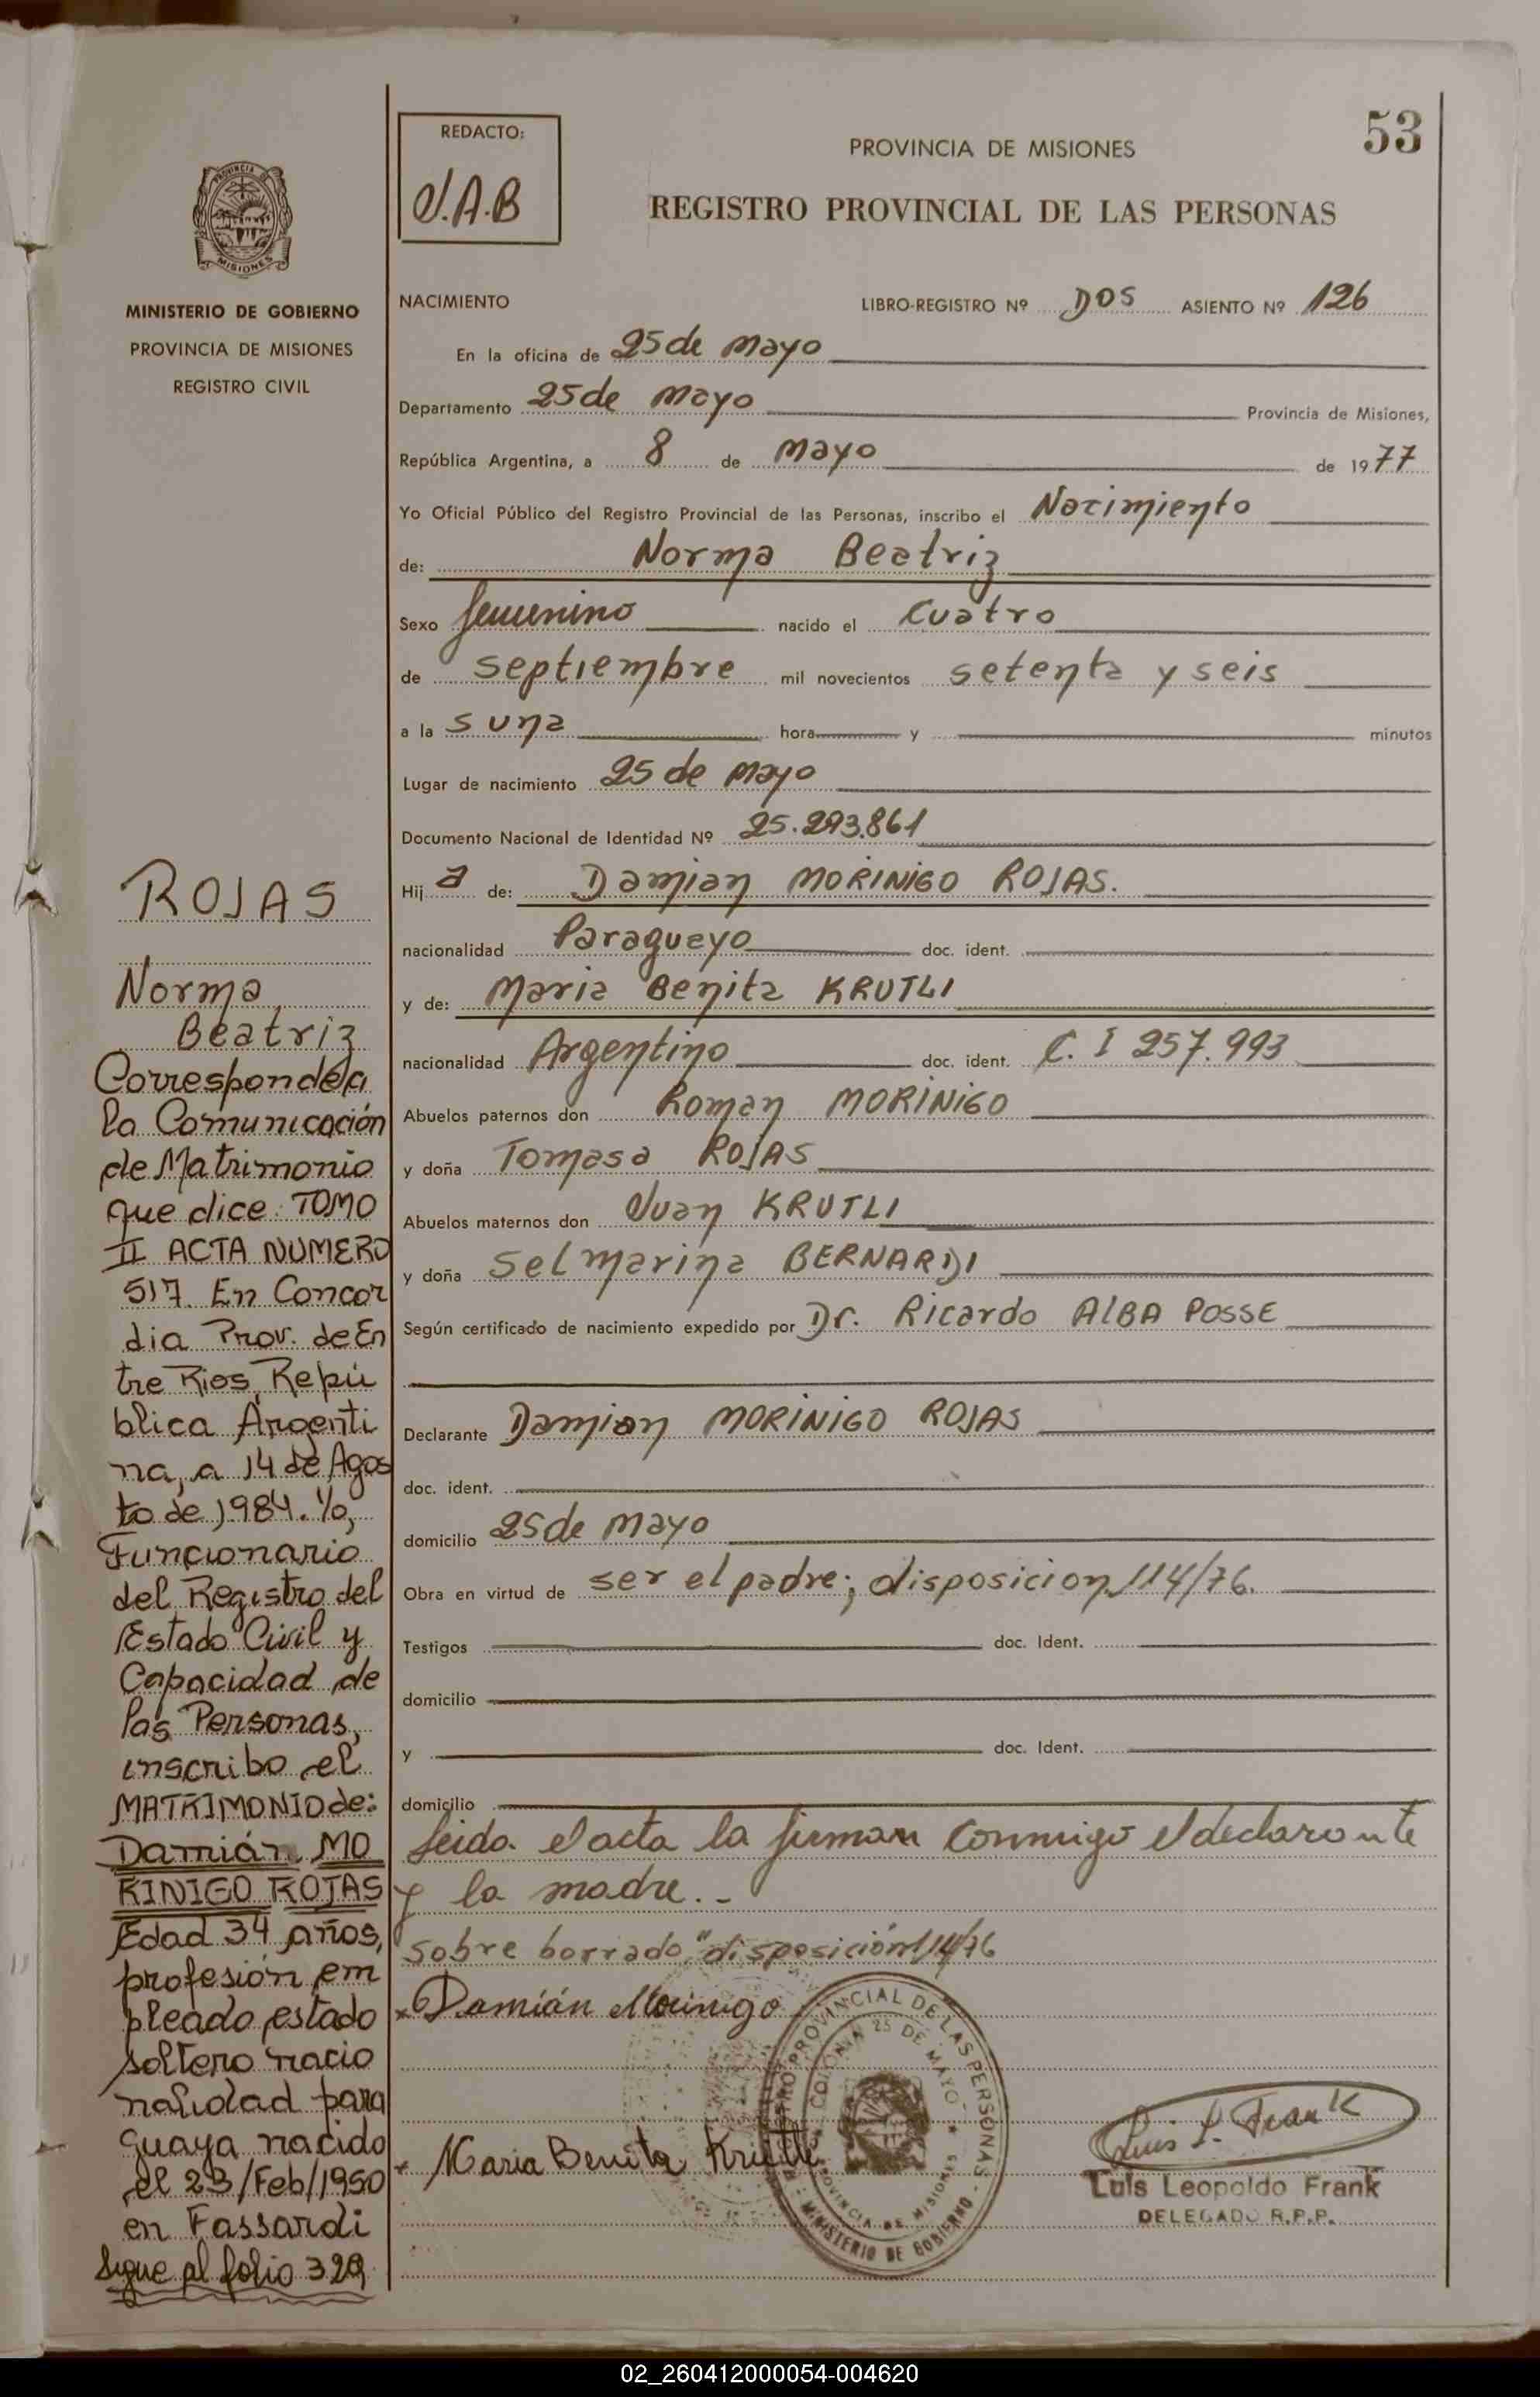 53
REDACTO:
J.A.B
PROVINCIA DE MISIONES
REGISTRO PROVINCIAL DE LAS PERSONAS
PROVINCIA DE
MISIONES
MINISTERIO DE GOBIERNO
PROVINCIA DE MISIONES
REGISTRO CIVIL
NACIMIENTO LIBRO-REGISTRO Nº DOS ASIENTO Nº 126
En la oficina de 25 de mayo
Departamento 25 de mayo Provincia de Misiones,
República Argentina, a 8 de mayo de 1977
Yo Oficial Público del Registro Provincial de las Personas, inscribo el Nacimiento
de: Norma Beatriz
Sexo femenino nacido el cuatro
de septiembre mil novecientos setenta y seis
a la s una hora y minutos
Lugar de nacimiento 25 de mayo
Documento Nacional de Identidad Nº 25.293.861
Hij a de: Damian MORINIGO ROJAS.
nacionalidad Paragueyo doc. ident.
y de: Maria Benita KRUTLI
nacionalidad Argentino doc. ident. C. I 257.993
Abuelos paternos don Roman MORINIGO
y doña Tomasa ROJAS
Abuelos maternos don Juan KRUTLI
y doña Selmarina BERNARDI
Según certificado de nacimiento expedido por Dr. Ricardo ALBA POSSE
Declarante Damian MORINIGO ROJAS
doc. ident.
domicilio 25 de mayo
Obra en virtud de ser el padre; disposicion 114/76.
Testigos doc. Ident.
domicilio
y doc. Ident.
domicilio
Leida el acta la firman conmigo el declarante
y la madre.-
sobre borrado "disposición 114/76
Damián Morinigo
Maria Benita Krutli
REGISTRO PROVINCIAL DE LAS PERSONAS
COLONIA 25 DE MAYO
PROVINCIA DE MISIONES
MINISTERIO DE GOBIERNO
Luis L. Frank
Luis Leopoldo Frank
DELEGADO R.P.P.
ROJAS
Norma
Beatriz
Corresponde a
la Comunicación
de Matrimonio
que dice: TOMO
II ACTA NUMERO
517. En Concor
dia Prov. de En
tre Rios, Repú
blica Argenti
na, a 14 de Agos
to de 1984. Yo,
Funcionario
del Registro del
Estado Civil y
Capacidad de
las Personas,
inscribo el
MATRIMONIO de:
Damián MO
RINIGO ROJAS
Edad 34 años,
profesión em
pleado, estado
soltero nacio
nalidad para
guaya nacido
el 23/Feb/1950
en Fassardi
Sigue al folio 329
02_260412000054-004620